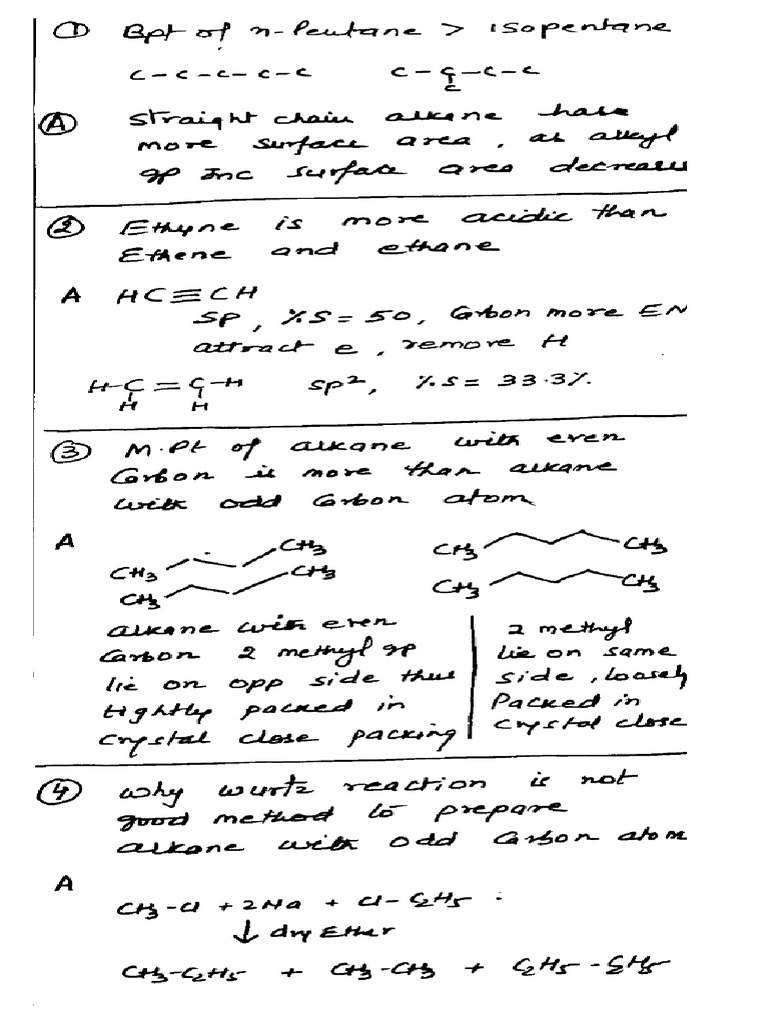 ① Bpt of n-Pentane > isopentane
C-C-C-C-C C-C-C-C
C
Ⓐ Straight chain alkane have
more surface area, as alkyl
gp Inc surface area decreases
② Ethyne is more acidic than
Ethene and ethane
A HC≡CH
SP, %S = 50, Carbon more EN
attract e, remove H
H-C=C-H SP², %S = 33.3%
H H
③ M.Pt of alkane with even
Carbon is more than alkane
with odd Carbon atom
A CH3 CH3 CH3 CH3
CH3 CH3 CH3 CH3
alkane with even
Carbon 2 methyl gp
lie on opp side thus
tightly packed in
crystal close packing
2 methyl
lie on same
side, loosely
Packed in
crystal close
④ why wurtz reaction is not
good method to prepare
alkane with odd Carbon atom
A
CH3-Cl + 2Na + Cl-C2H5
↓ dry Ether
CH3-C2H5 + CH3-CH3 + C2H5-C2H5